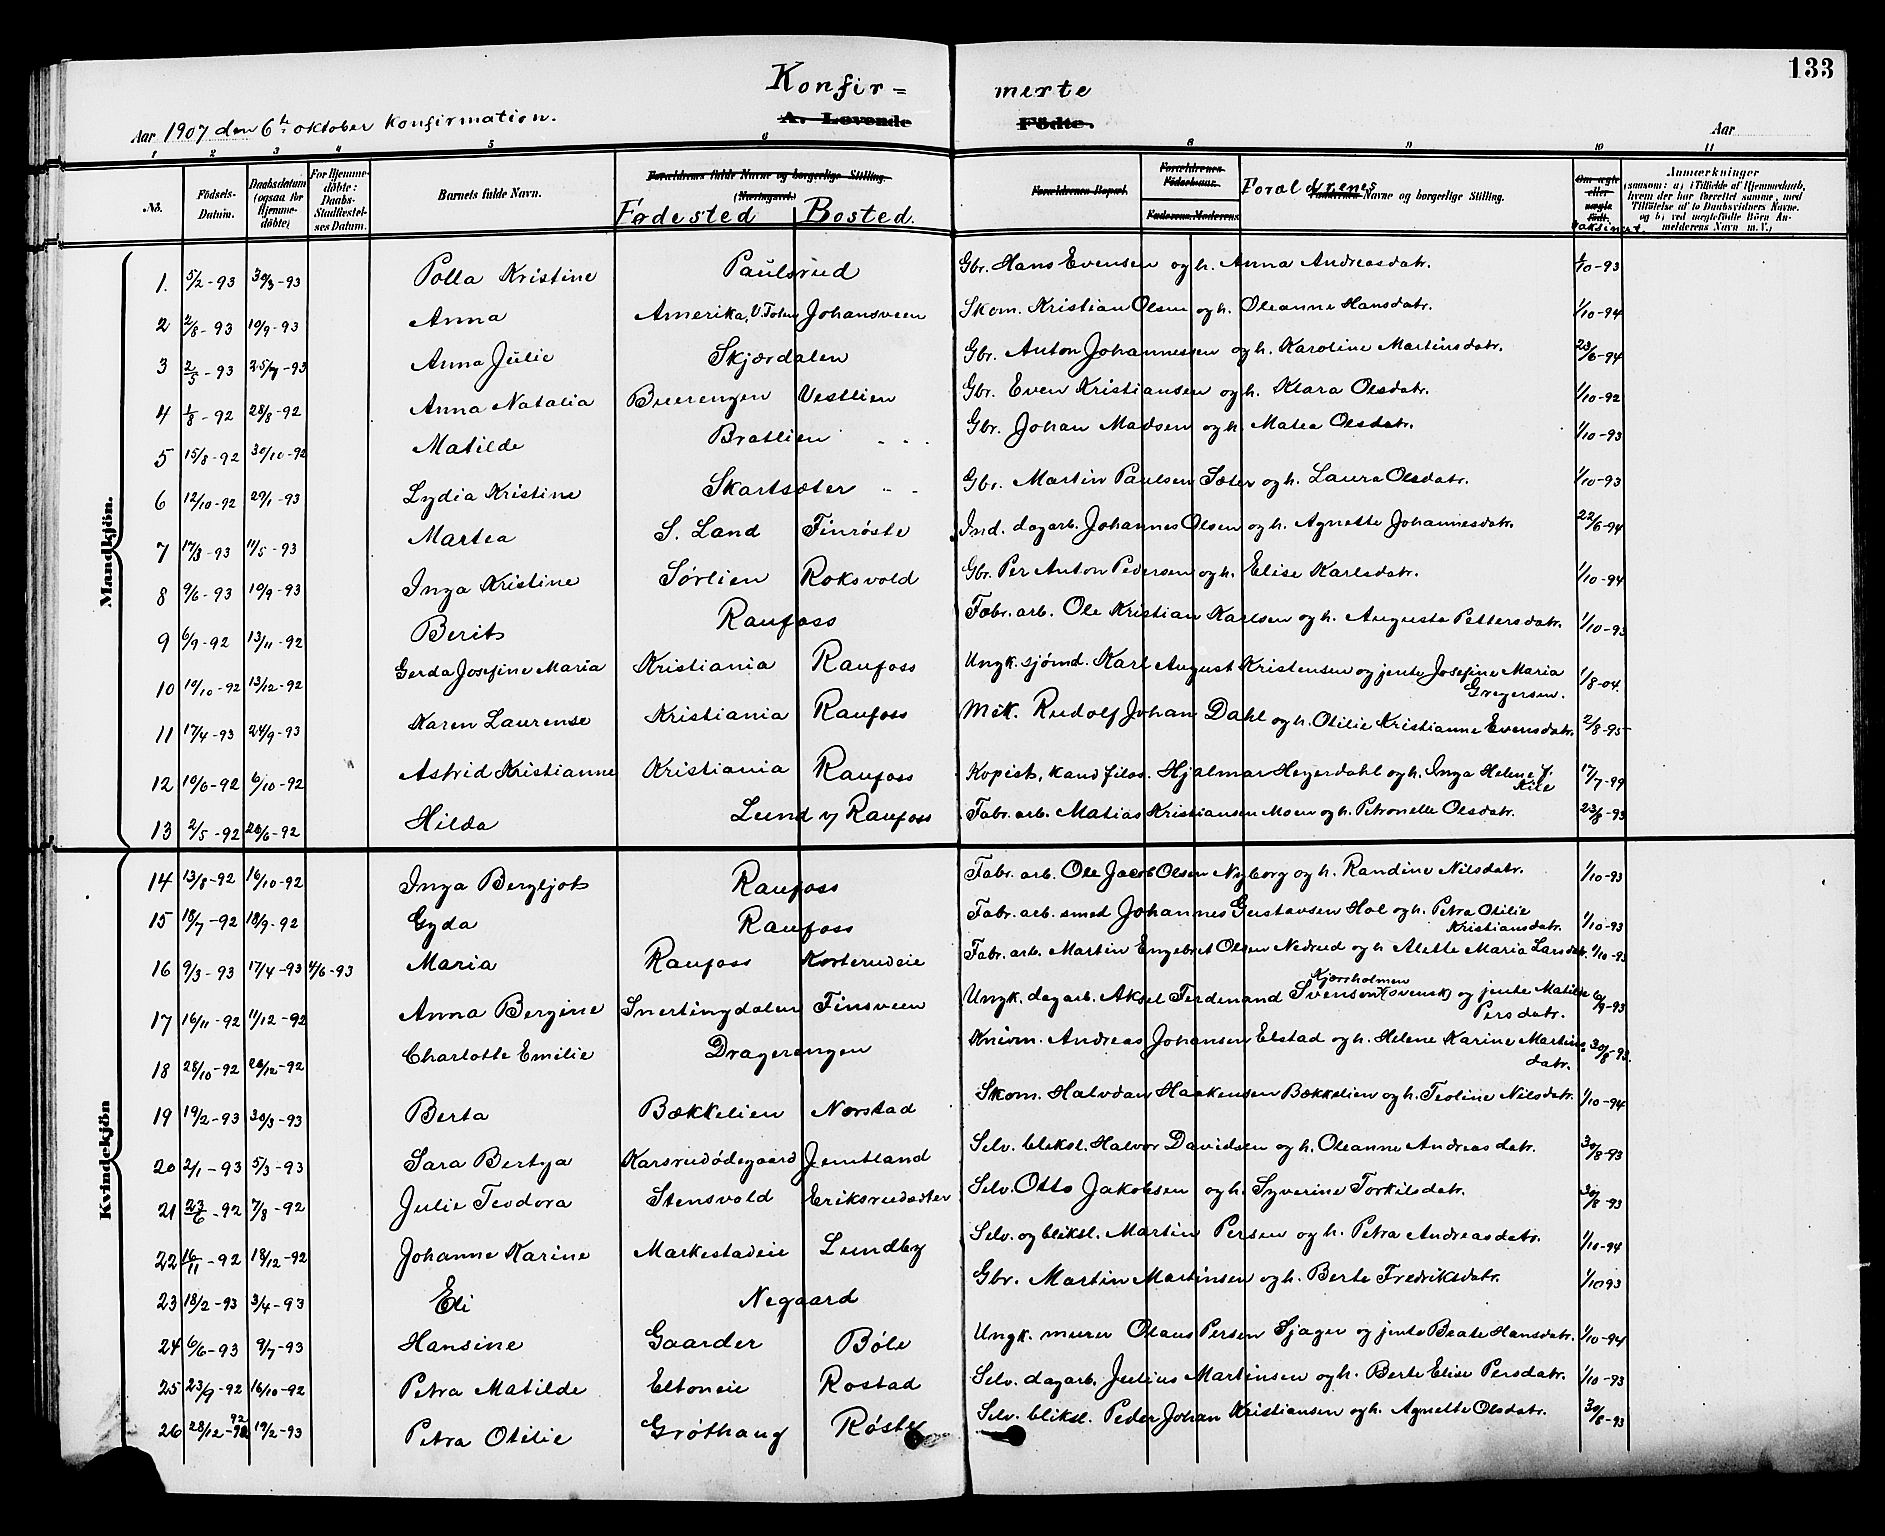 133
Konfir = merte
A. Levende Födte.
Aar 1907 den 6te oktober Konfirmation. Aar
1 2 3 4 5 6 8 9 10 11
No. Födsels-Datum. Daabsdatum (ogsaa for Hjemme-döbte) For Hjemme-döbte: Daabs-Stadfæstel-ses Datum. Barnets fulde Navn. Forældrenes fulde Navne og borgerlige Stilling. (Næringsvei.) Fødested Bosted. Forældrenes Bopæl. Forældrenes Födselsaar. Faderens Moderens Foraldrenes Navne og borgerlige Stilling. Om ægte eller uægte födt. Vaksinert. Anmærkninger (saasom: a) i Tilfælde af Hjemmedaab, hvem der har forrettet samme, med Tilföielse af to Daabsvidners Navne. og b) ved uægtefödte Börn An-melderens Navn m. V.)
Mandkjön.
1. 5/2-93 30/3-93 Polla Kristine Paulsrud Gbr. Hans Evensen og h. Anna Andreasdatr. 1/10-93
2 2/8-93 10/9-93 Anna Amerika, V. Toten Johansveen Skom. Kristian Olsen og h. Oleanne Hansdatr. 1/10-94
3 2/5-93 25/7-93 Anna Julie Skjærdalen Gbr. Anton Johannessen og h. Karoline Martinsdatr. 23/6-94
4 1/8-92 28/8-92 Anna Natalia Buerengen Vestlien Gbr. Even Kristiansen og h. Klara Olsdatr. 1/10-92
5 15/8-92 30/10-92 Matilde Bratlien - - - Gbr. Johan Madsen og h. Matea Olsdatr. 1/10-93
6 12/10-92 29/1-93 Lydia Kristine Skartsæter - - Gbr. Martin Paulsen Sæter og h. Laura Olsdatr. 1/10-93
7 17/3-93 11/5-93 Martea S. Land Finrøste Ind. dagarb. Johannes Olsen og h. Agnette Johannesdatr. 22/6-94
8 9/6-93 10/9-93 Inga Kristine Sørlien Roksvold Gbr. Per Anton Pedersen og h. Elise Karlsdatr. 1/10-94
9 6/9-92 13/11-92 Berit Raufoss Fabr. arb. Ole Kristian Karlsen og h. Augusta Pettersdatr. 1/10-93
10 10/10-92 13/12-92 Gerda Josefine Maria Kristiania Raufoss Ungk. sjømd. Karl August Kristensen og jente Josefine Maria Gregersen. 1/8-04.
11 17/4-93 24/9-93 Karen Laurense Kristiania Raufoss Mek. Rudolf Johan Dahl og h. Otilie Kristianne Evensdatr. 2/8-95
12 10/6-92 6/10-92 Astrid Kristianne Kristiania Raufoss Kopist, kand filos. Hjalmar Heyerdahl og h. Inga Helene f. Kile 17/7-99
13 2/5-92 26/6-92 Hilda Lund v/ Raufoss Fabr. arb. Matias Kristiansen Moen og h. Petronelle Olsdatr. 23/8-93
14 13/8-92 16/10-92 Inga Bergljot Raufoss Fabr. arb. Ole Jacob Olsen Nyborg og h. Randine Nilsdatr. 1/10-93
15 18/7-92 18/9-92 Gyda Raufoss Fabr. arb. smed Johannes Gustavsen Hol og h. Petra Otilie Kristiansdatr. 1/10-93
16 9/3-93 17/4-93 4/6-93 Maria Raufoss Korterudeie Fabr. arb. Martin Engebret Olsen Nedrud og h. Alette Maria Larsdatr. 1/10-93
Kjærsholmen
17 16/11-92 11/12-92 Anna Bergine Snertingdalen Finsveen Ungk. dagarb. Aksel Ferdinand Svensen (svensk) og jente Matilde Persdatr. 6/9-93
18 28/10-92 26/12-92 Charlotte Emilie Dragerengen Knivm. Andreas Johansen Elstad og h. Helene Karine Martinsdatr. 30/8-93.
Kvindekjön
19 19/2-93 30/3-93 Berta Bækkelien Norstad Skom. Halvdan Haakensen Bækkelien og h. Teoline Nilsdatr. 1/10-94
20 2/1-93 5/3-93 Sara Bertya Karsrudødegaard Jemtland Selv. bliksl. Halvor Davidsen og h. Oleanne Andreasdatr. 30/8-93
21 23/6-92 7/8-92 Julie Teodora Stensvold Eriksrudsæter Selv. Otto Jakobsen og h. Syverine Torkilsdatr. 30/8-93
22 16/11-92 18/12-92 Johanne Karine Markestadeie Lundby Selv. og bliksl. Martin Persen og h. Petra Andreasdatr. 1/10-94
23 18/2-93 3/4-93 Eli Negaard Gbr. Martin Martinsen og h. Berte Fredriksdatr. 1/10 93
24 6/6-93 9/7-93 Hansine Gaarder Bøle Ungk. murer Olaus Persen Sjager og jente Beate Hansdatr. 1/10-94
25 23/9-92 16/10-92 Petra Matilde Eltoneie Rostad Selv. dagarb. Julius Martinsen og h. Berte Elise Persdatr. 1/10-93
26 28/12-92 19/2-93 Petra Otilie Grøthaug Røste Selv. bliksl. Peder Johan Kristiansen og h. Agnette Olsdatr. 30/8-93